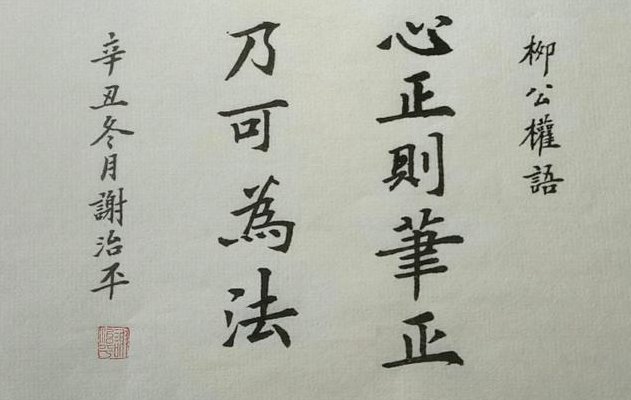 柳公權語
心正則筆正
乃可為法
辛丑冬月謝治平